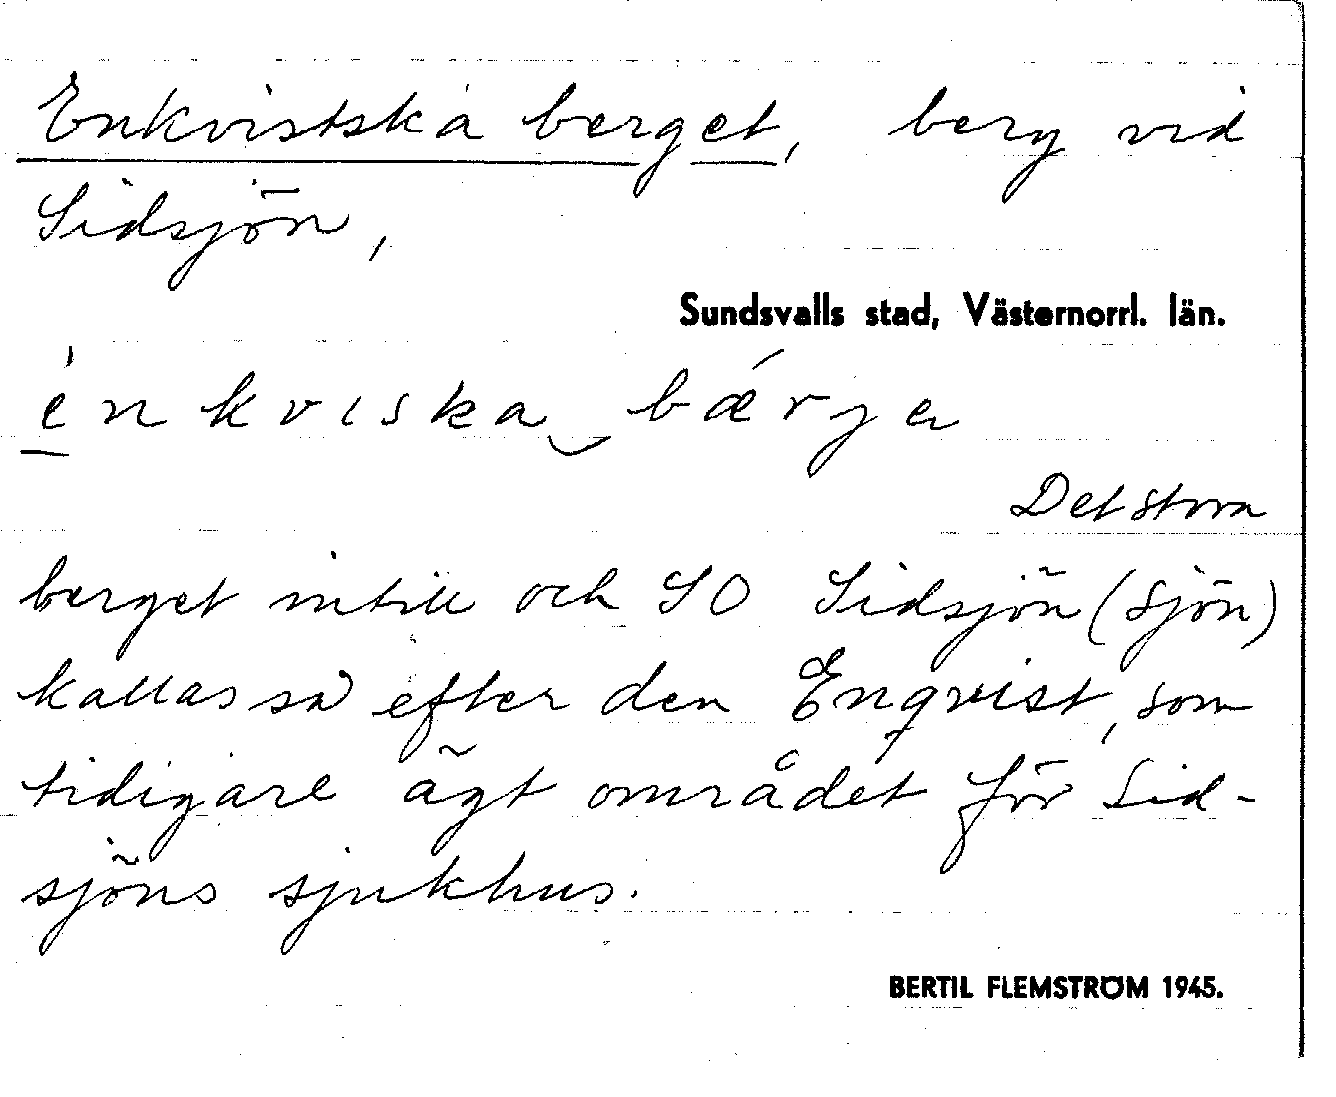 Enkvistska berget, berg vid
Sidsjön,
Sundsvalls stad, Västernorrl. län.
énkviska‿bǽrjer
Det stora
berget intill och SO Sidsjön (Sjön)
kallas så efter den Enqvist, som
tidigare ägt området för Sid-
sjöns sjukhus.
BERTIL FLEMSTRÖM 1945.